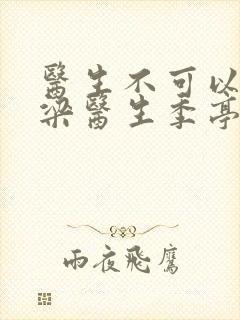 醫生不可以
梁醫生季亭
雨夜飛鷹